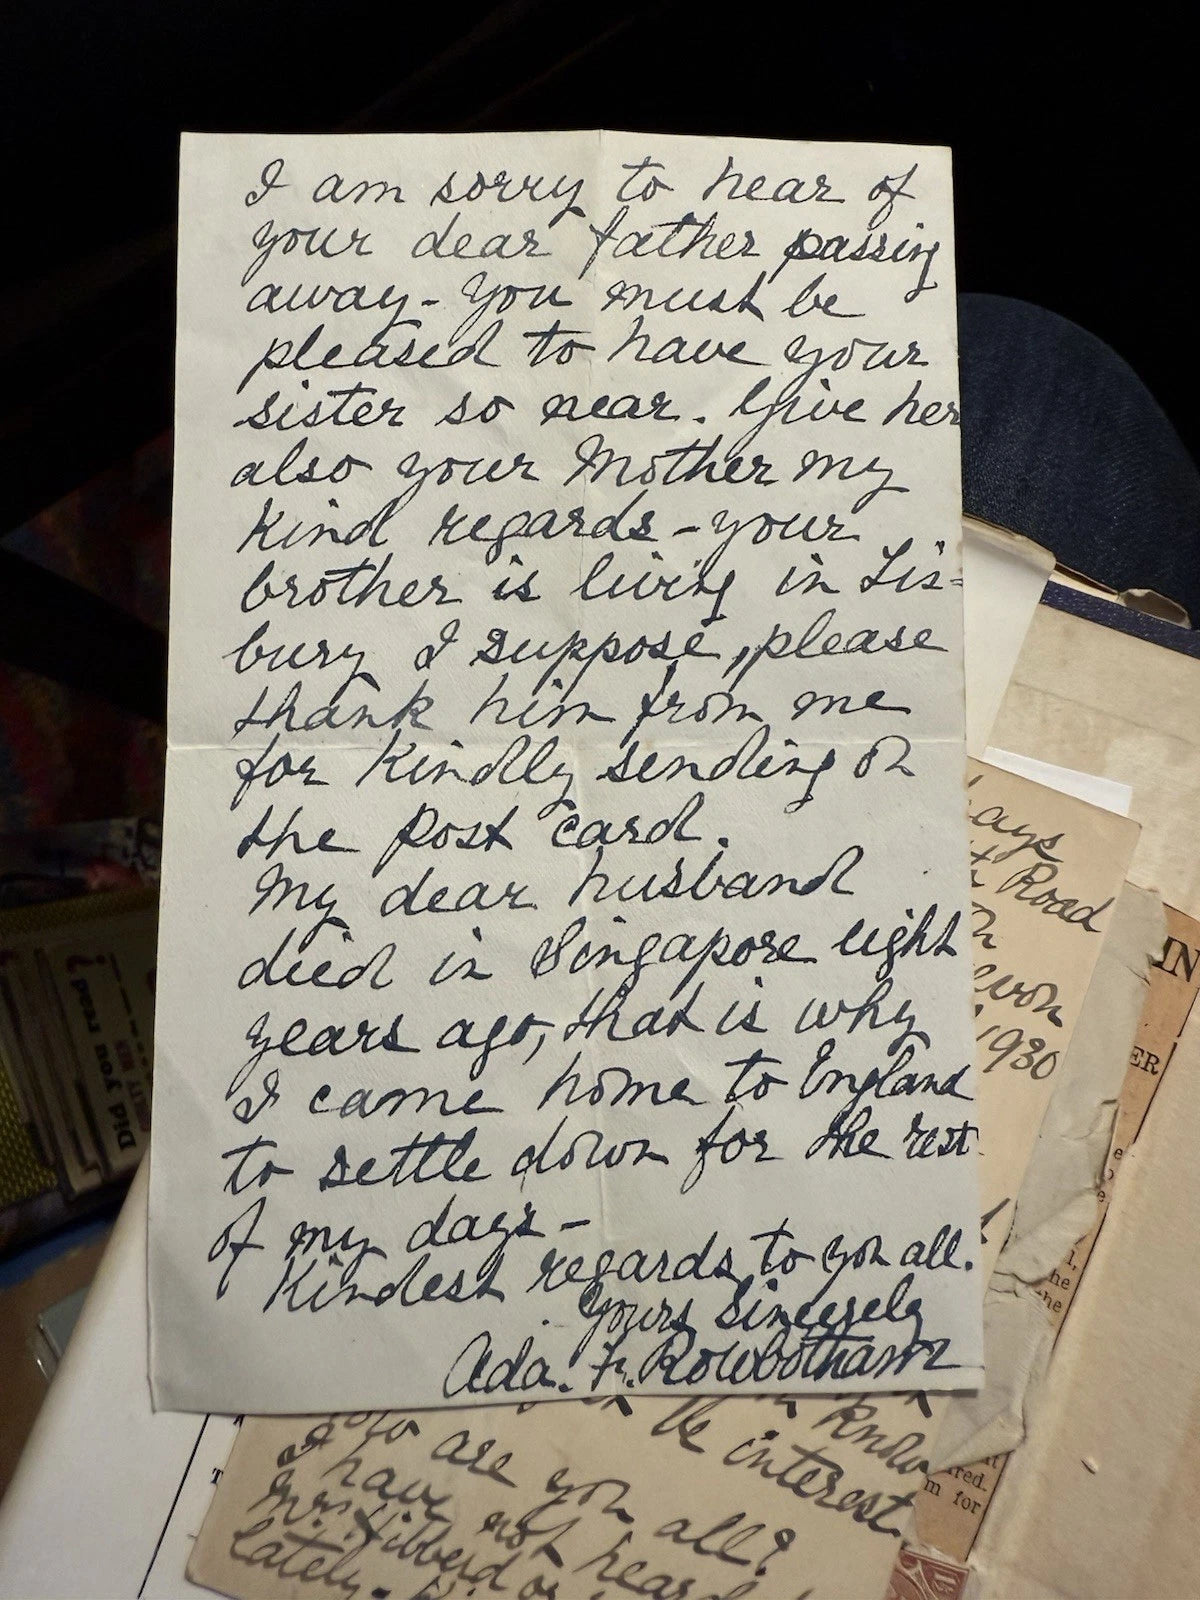 I am sorry to hear of
your dear father passing
away - you must be
pleased to have your
sister so near. Give her
also your Mother my
Kind regards - your
brother is living in Tis=
bury I suppose, please
thank him from me
for Kindly sending on
the Post card.
My dear husband
died in Singapore eight
years ago, that is why
I came home to England
to settle down for the rest
of my days -
Kindest regards to you all.
Yours Sincerely
Ada. F. Rowbotham
ays
Road
evon
1930
IN
ER
he
Did you read
know
be interest
are you all?
I have not heard
Mrs Hibberd or
lately -
red.
m for